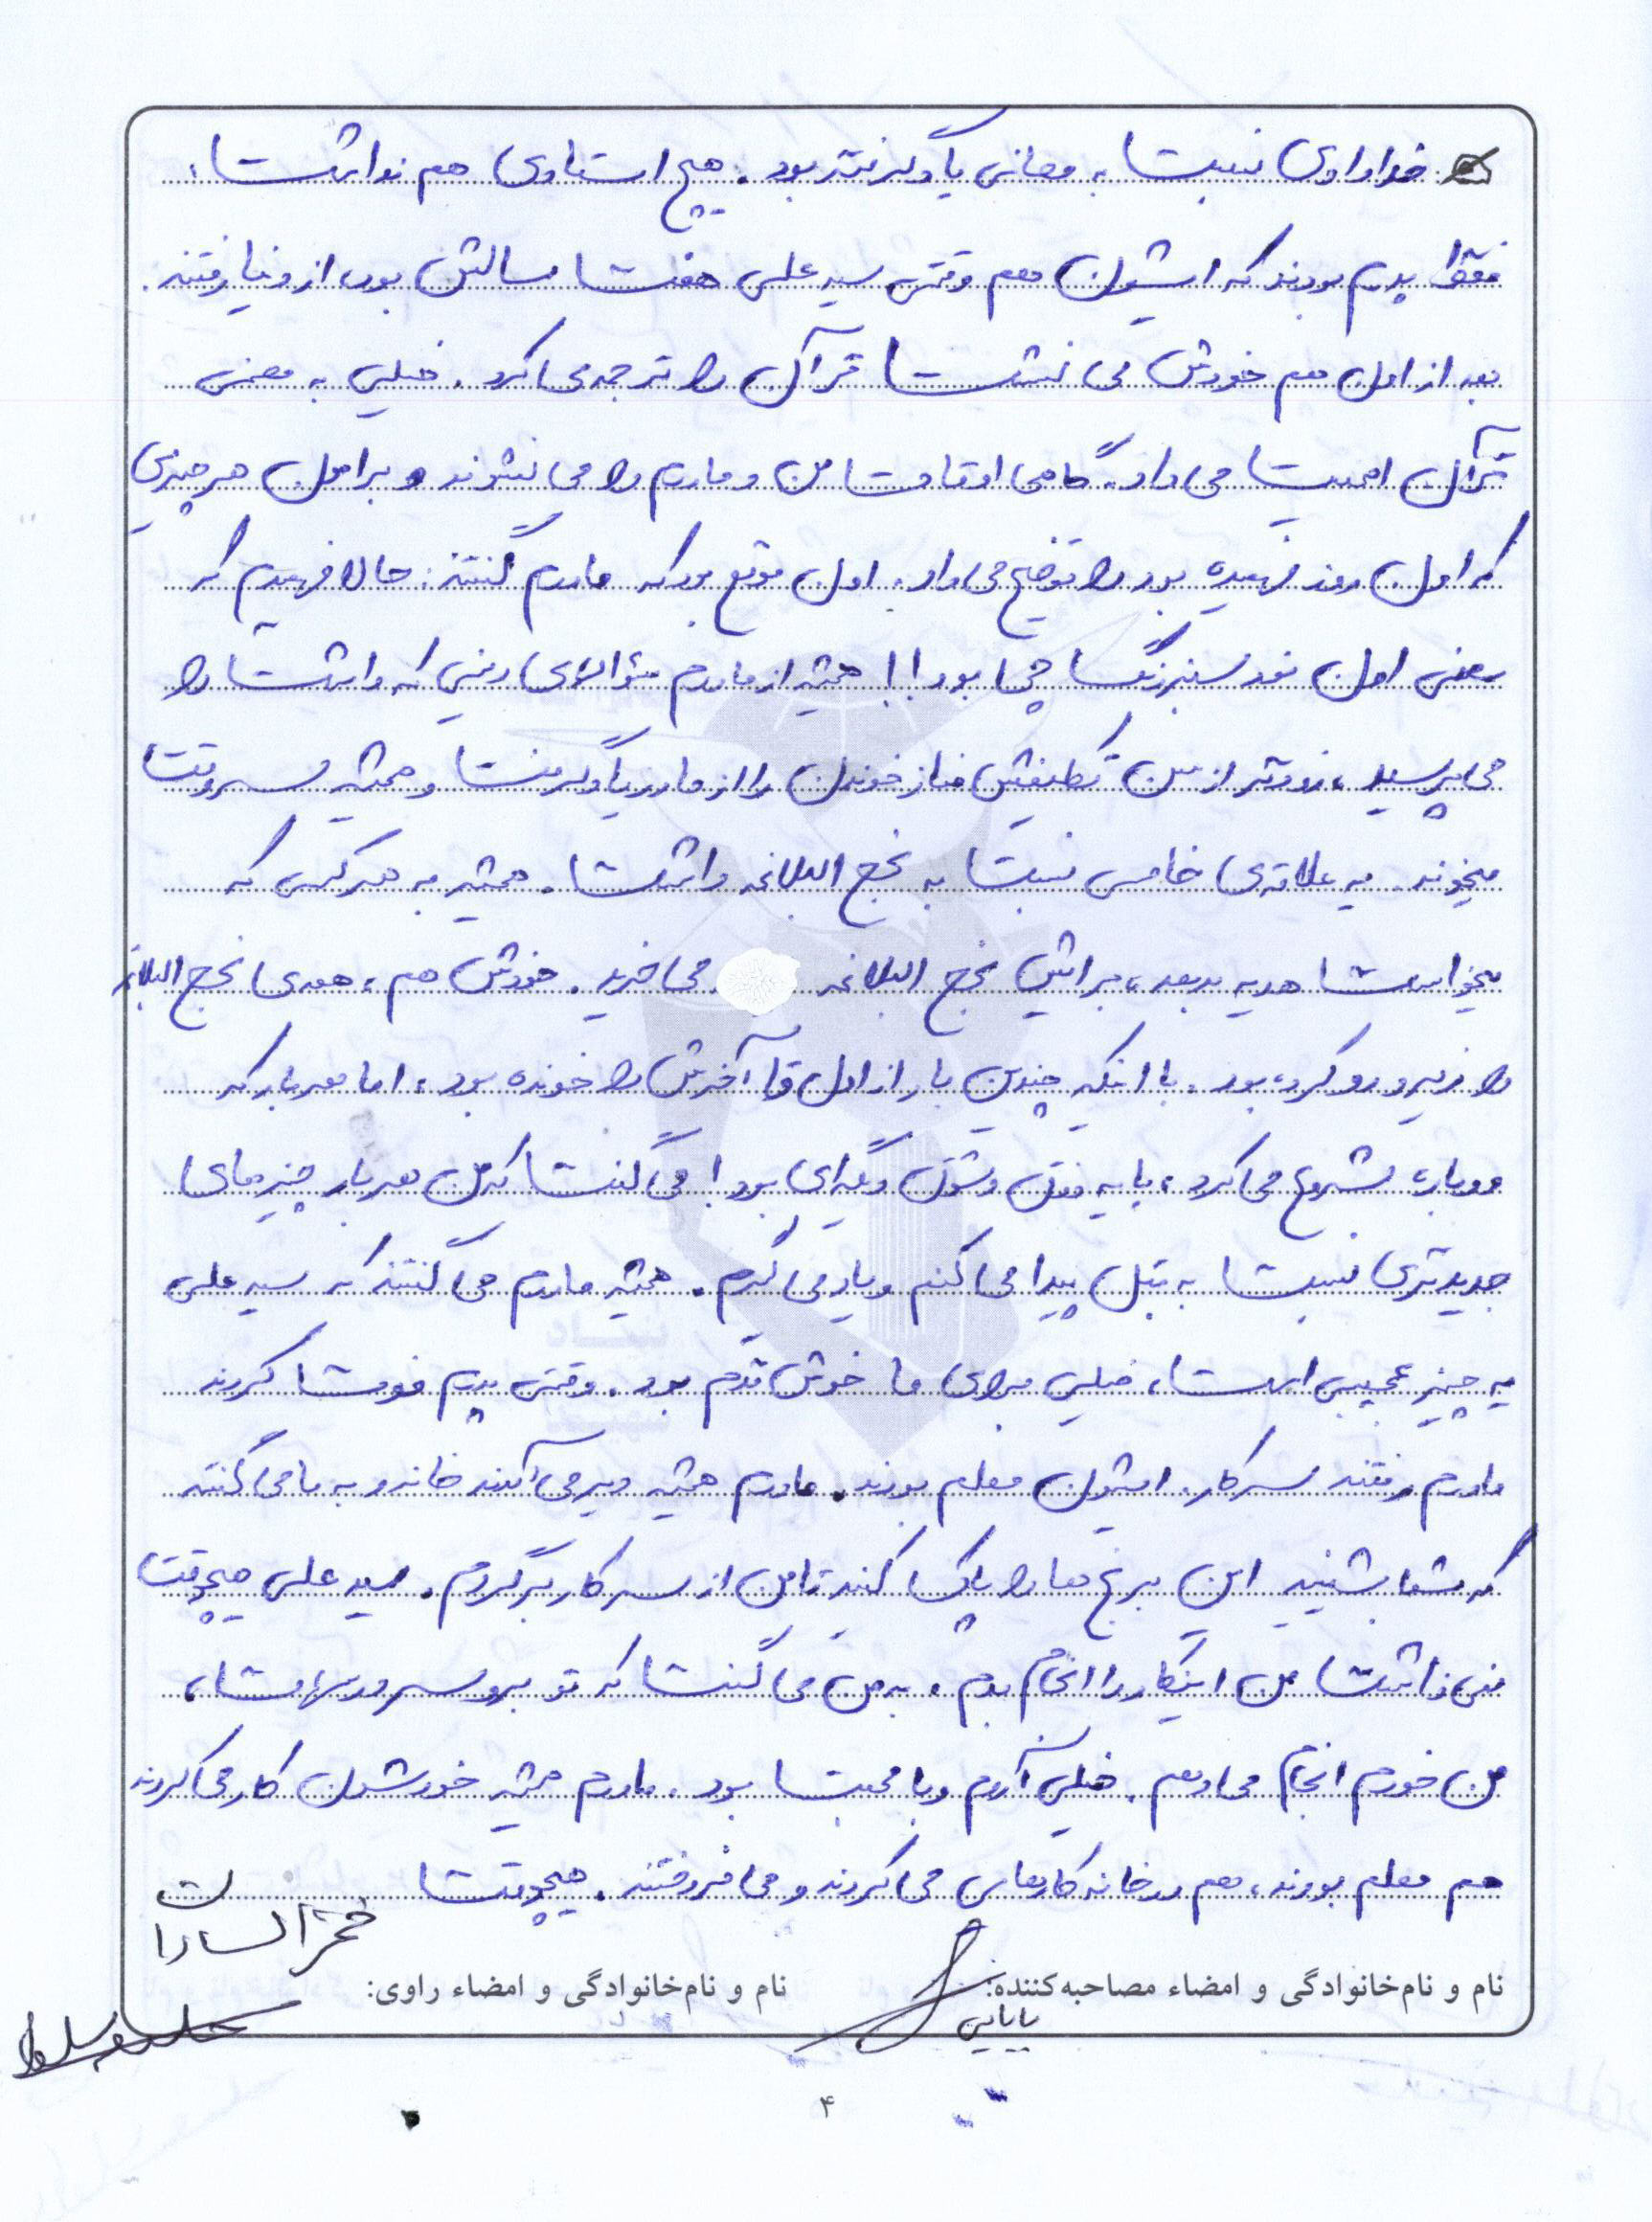 خدادادی نسبت به معانی یاد گرفته بود. هیچ استادی هم نداشت،
فقط پدرم بودند که ایشون هم وقتی سید علی هفت سالش بود، از دنیا رفتند.
بعد از اون هم خودش می نشست قرآن را ترجمه می کرد. خیلی به معنی
قرآن اهمیت می داد. گاهی اوقات من و مادرم را می نشوند و برامون هر چیزی
که اون روز فهمیده بود را توضیح می داد. اون موقع بود که مادرم گفتند: حالا فهمیدم که
معنی اون نور سبز رنگ چی بود!! همیشه از مادرم سؤالای دینی که داشت را
می پرسید، زودتر از سن تکلیفش نماز خوندن را از مادر یاد گرفت و همیشه سر وقت
میخوند. یه علاقه ی خاصی نسبت به نهج البلاغه داشت. همیشه به هر کسی که
میخواست هدیه بدهد، براش نهج البلاغه می خرید. خودش هم، همه ی نهج البلاغه
را زیر و رو کرده بود. با اینکه چندین بار از اول تا آخرش را خونده بود، اما هر بار که
دوباره شروع می کرد، با یه ذوق و شوق دیگه ای بود! می گفت که من هر بار چیزهای
جدیدتری نسبت به قبل پیدا می کنم و یاد می گیرم. همیشه مادرم می گفتند که سید علی
یه چیز عجیبی است، خیلی برای ما خوش قدم بود. وقتی پدرم فوت کردند
مادرم رفتند سر کار. ایشون معلم بودند. مادرم همیشه دیر می آمدند خانه و به ما می گفتند
که شما بشینید این برنج ها را پاک کنید تا من از سر کار برگردم. سید علی هیچوقت
نمی ذاشت من اینکار را انجام بدم. به من می گفت که تو برو سر درسهات،
من خودم انجام می دهم. خیلی آروم و با محبت بود. مادرم همیشه خودشون کار می کردند
هم معلم بودند، هم در خانه کارهایی می کردند و می فروختند. هیچوقت
فخرالسادات
نام و نام‌خانوادگی و امضاء مصاحبه‌کننده: بابایی
نام و نام‌خانوادگی و امضاء راوی:
۴